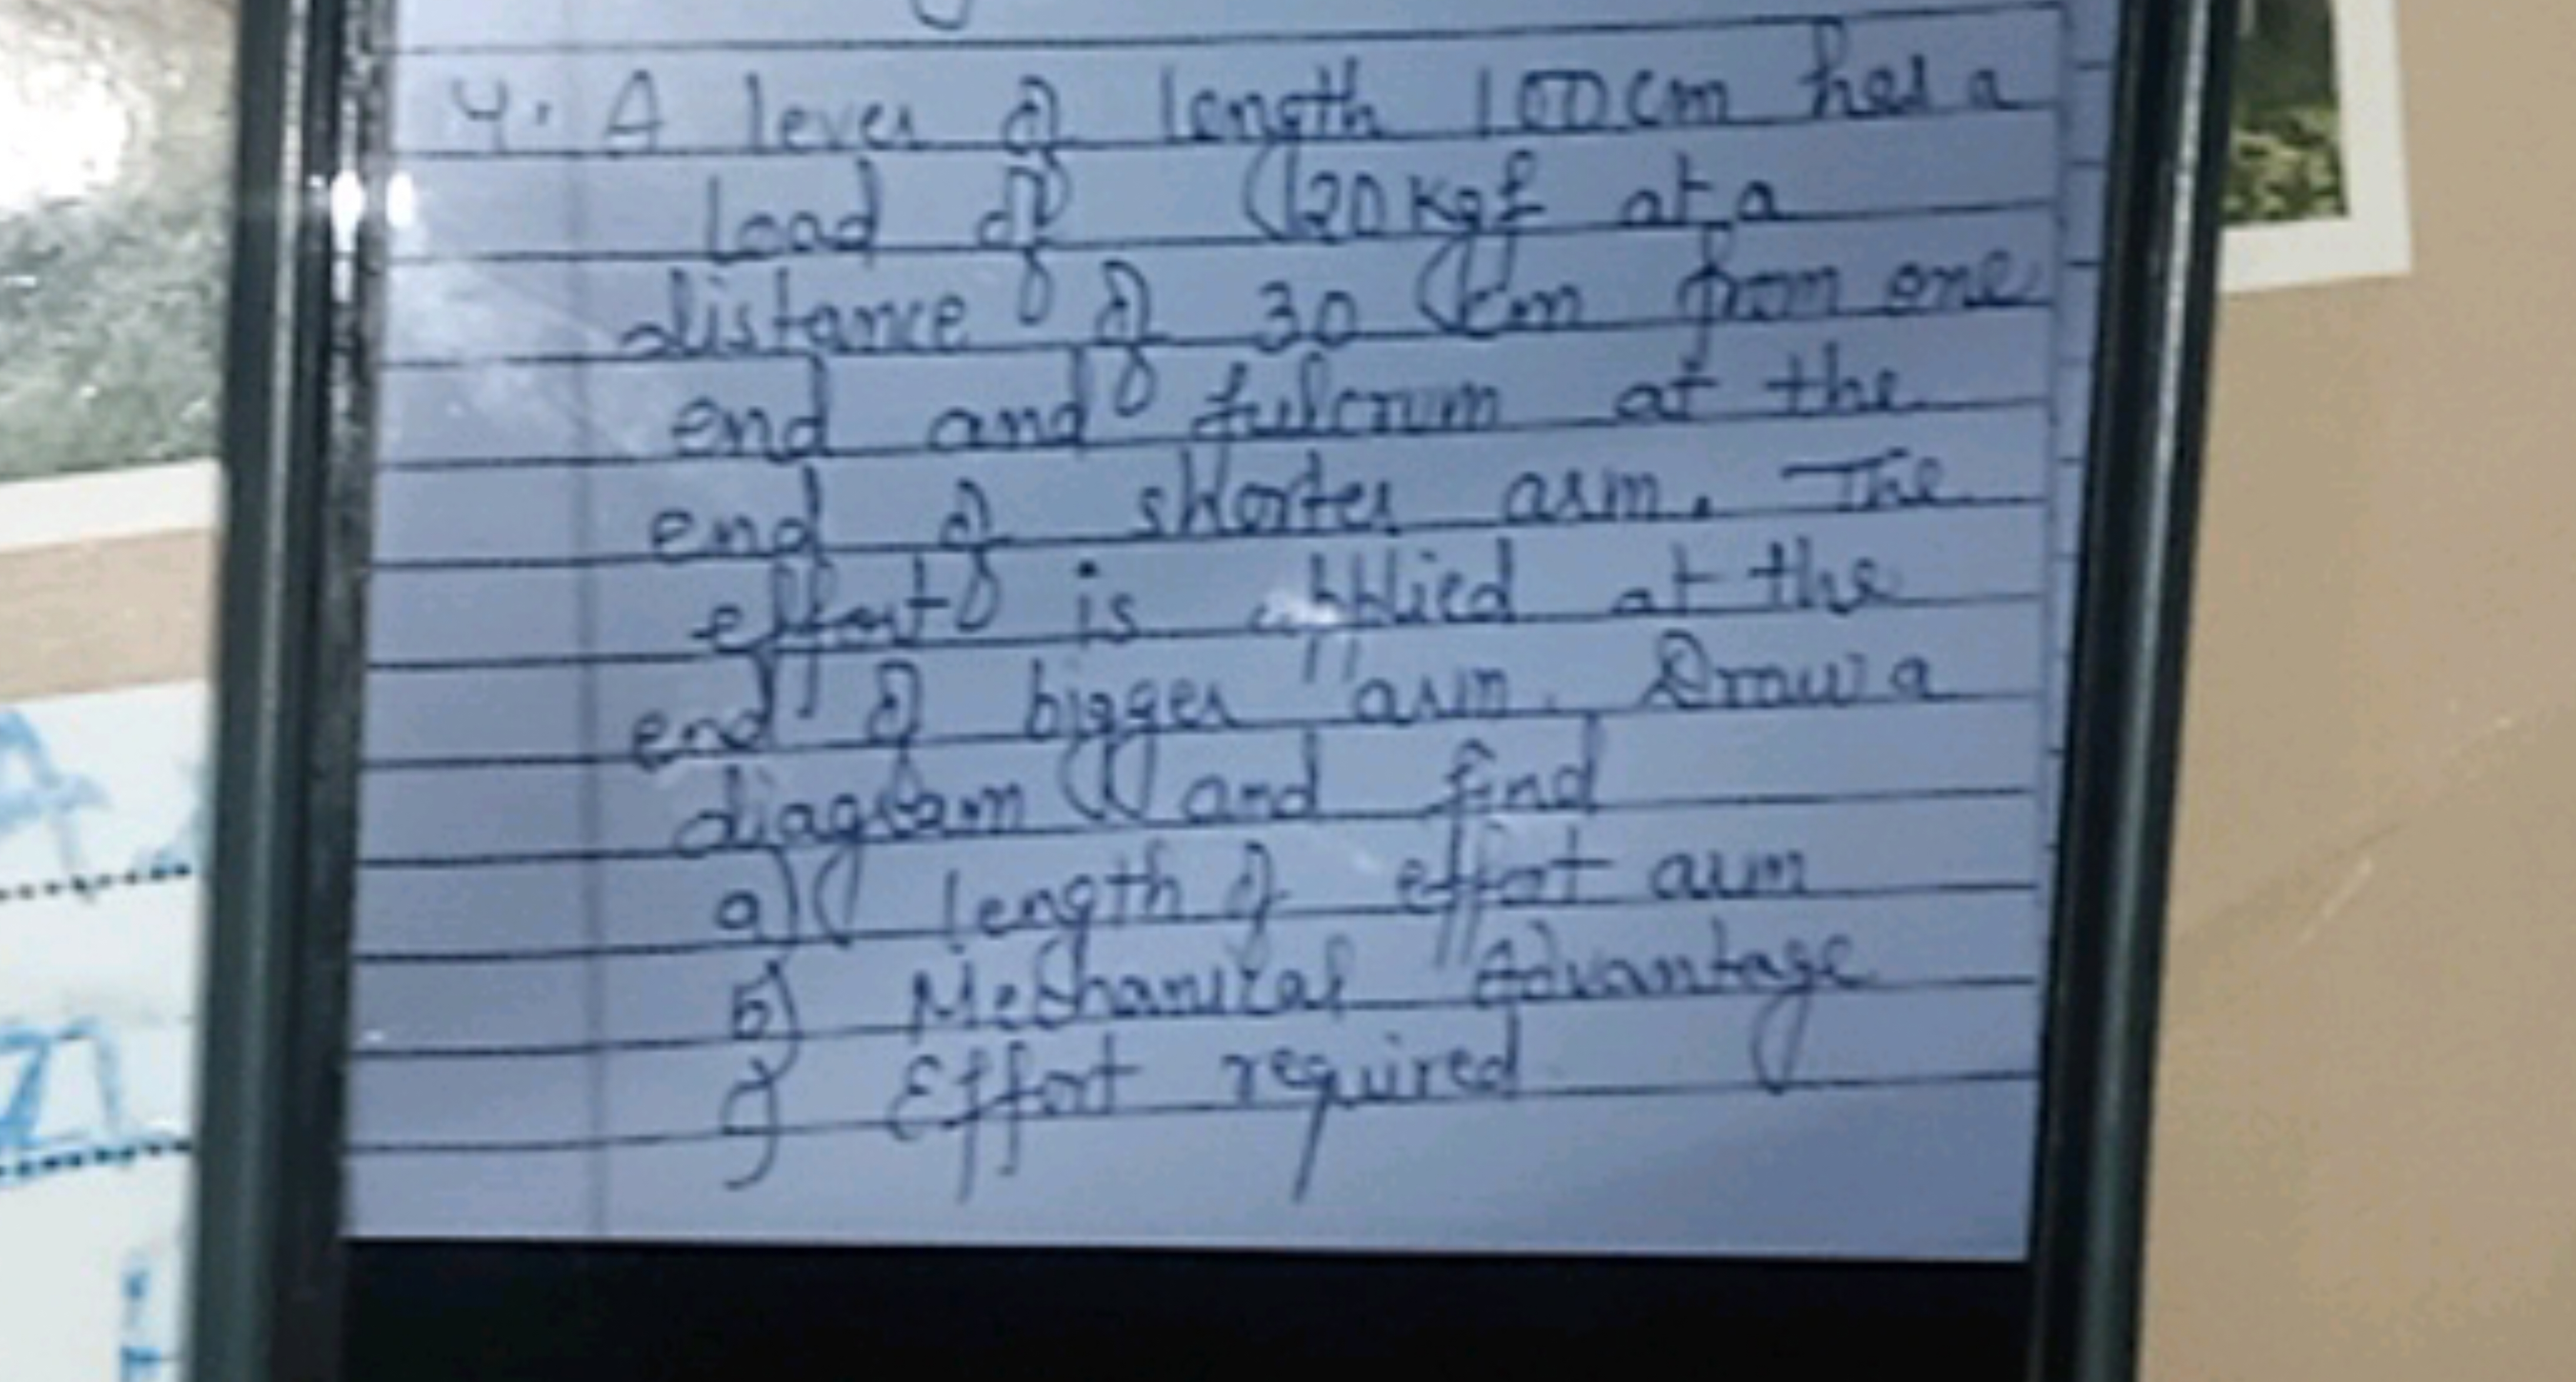 4. A lever of length 100cm has a
load of 120 kgf at a
distance of 30 cm from one
end and fulcrum at the
end of shorter arm. The
effort is applied at the
end of bigger arm. Draw a
diagram and find
a) length of effort arm
b) Mechanical Advantage
c) Effort required